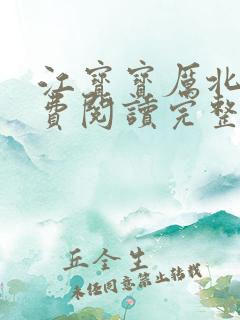 江寶寶厲北
費閱讀完整
丘全生
未经同意禁止转载